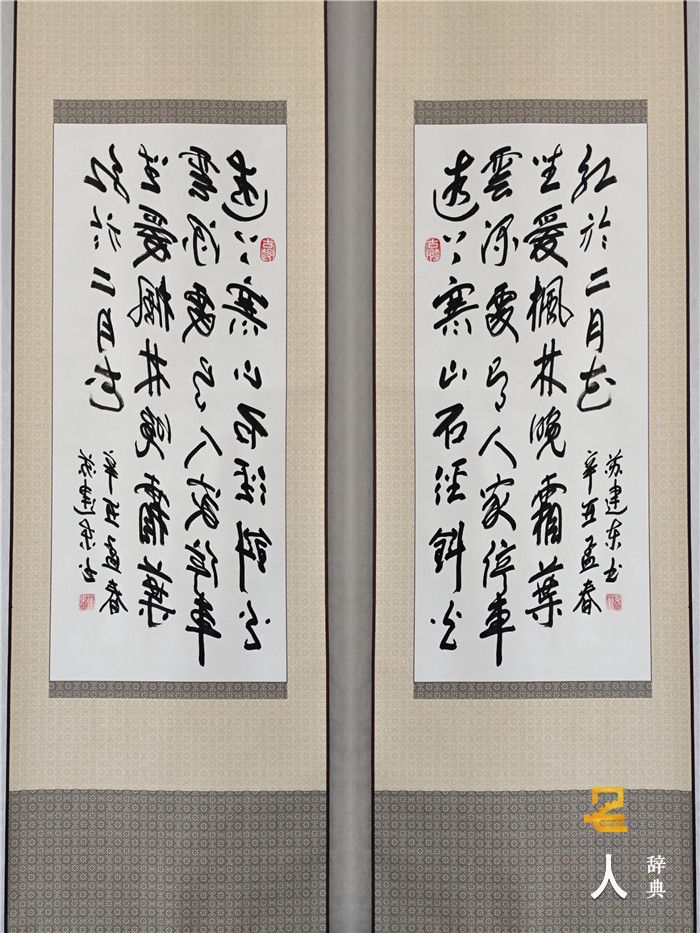 遠上寒山石径斜白
雲深處有人家停車
坐愛楓林晚霜葉
红於二月花
辛丑孟春
苏建东书
遠上寒山石径斜白
雲深處有人家停車
坐愛楓林晚霜葉
红於二月花
辛丑孟春
苏建东书
名人
辞典